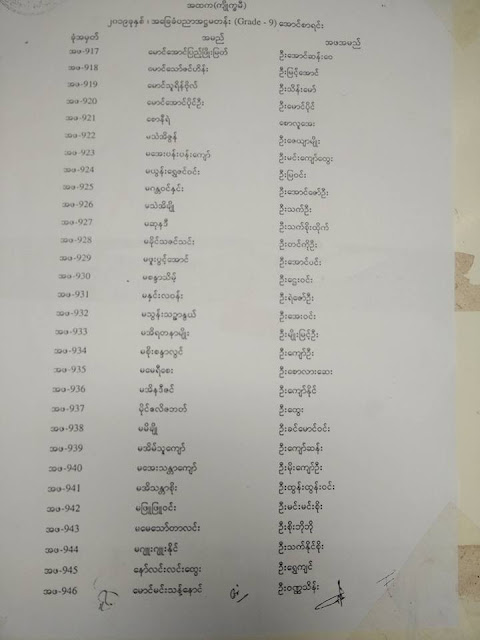 အထက(ကျိုက္ခမီ)
၂၀၁၉ခုနှစ် ၊ အခြေခံပညာအဋ္ဌမတန်း (Grade - 9) အောင်စာရင်း
ခုံအမှတ် အမည် အဖအမည်
အဖ-917 မောင်အောင်ပြည့်ဖြိုးမြတ် ဦးအောင်ဆန်းဝေ
အဖ-918 မောင်သော်ဇင်ဟိန်း ဦးမြင့်အောင်
အဖ-919 မောင်သူရိန်ဗိုလ် ဦးသိန်းဇော်
အဖ-920 မောင်အောင်ပိုင်ဦး ဦးမောင်ပိုင်
အဖ-921 စောနီရဲ စောလူအေး
အဖ-922 မသဲအိဇွန် ဦးဇေယျာမျိုး
အဖ-923 မအေးပန်းပန်းကျော် ဦးမင်းကျော်ထွေး
အဖ-924 မယွန်းရွှေဇင်ဝင်း ဦးမြဝင်း
အဖ-925 မဂန္တဝင်နှင်း ဦးအောင်ဇော်ဦး
အဖ-926 မသဲအိမျို့ ဦးသက်ဦး
အဖ-927 မဆုနဒီ ဦးသက်စိုးထိုက်
အဖ-928 မခိုင်သဇင်သင်း ဦးတင်ကိုဦး
အဖ-929 မဖူးပွင့်အောင် ဦးအောင်ပင်း
အဖ-930 မစန္ဒာသိမ့် ဦးဌေးဝင်း
အဖ-931 မနှင်းလဝန်း ဦးရဲဇော်ဦး
အဖ-932 မသွန်းသဥ္ဇာနွယ် ဦးအေးဝင်း
အဖ-933 မအိရတနာမျိုး ဦးမျိုးမြင့်ဦး
အဖ-934 မစိုးစန္ဒာလွင် ဦးကျော်ဦး
အဖ-935 မမေရီစေး ဦးစောလားဆေး
အဖ-936 မအိနဒီဇင် ဦးကျော်နိုင်
အဖ-937 မိုင်ဇလိဇဘတ် ဦးထွေး
အဖ-938 မမိမျို့ ဦးခင်မောင်ဝင်း
အဖ-939 မအိမ်သူကျော် ဦးကျော်ဆန်း
အဖ-940 မအေးသန္တာကျော် ဦးမိုးကျော်ဦး
အဖ-941 မအိသန္တာစိုး ဦးထွန်းထွန်းဝင်း
အဖ-942 မဖြူဖြူဝင်း ဦးမင်းမင်းစိုး
အဖ-943 မမေသော်တာလင်း ဦးစိုးဘိုဘို
အဖ-944 မဂျူးဂျူးနိုင် ဦးသက်နိုင်စိုး
အဖ-945 နော်လင်းလင်းထွေး ဦးရွှေကျင်
အဖ-946 မောင်မင်းသန့်နောင် ဦးဝဏ္ဏသိန်း